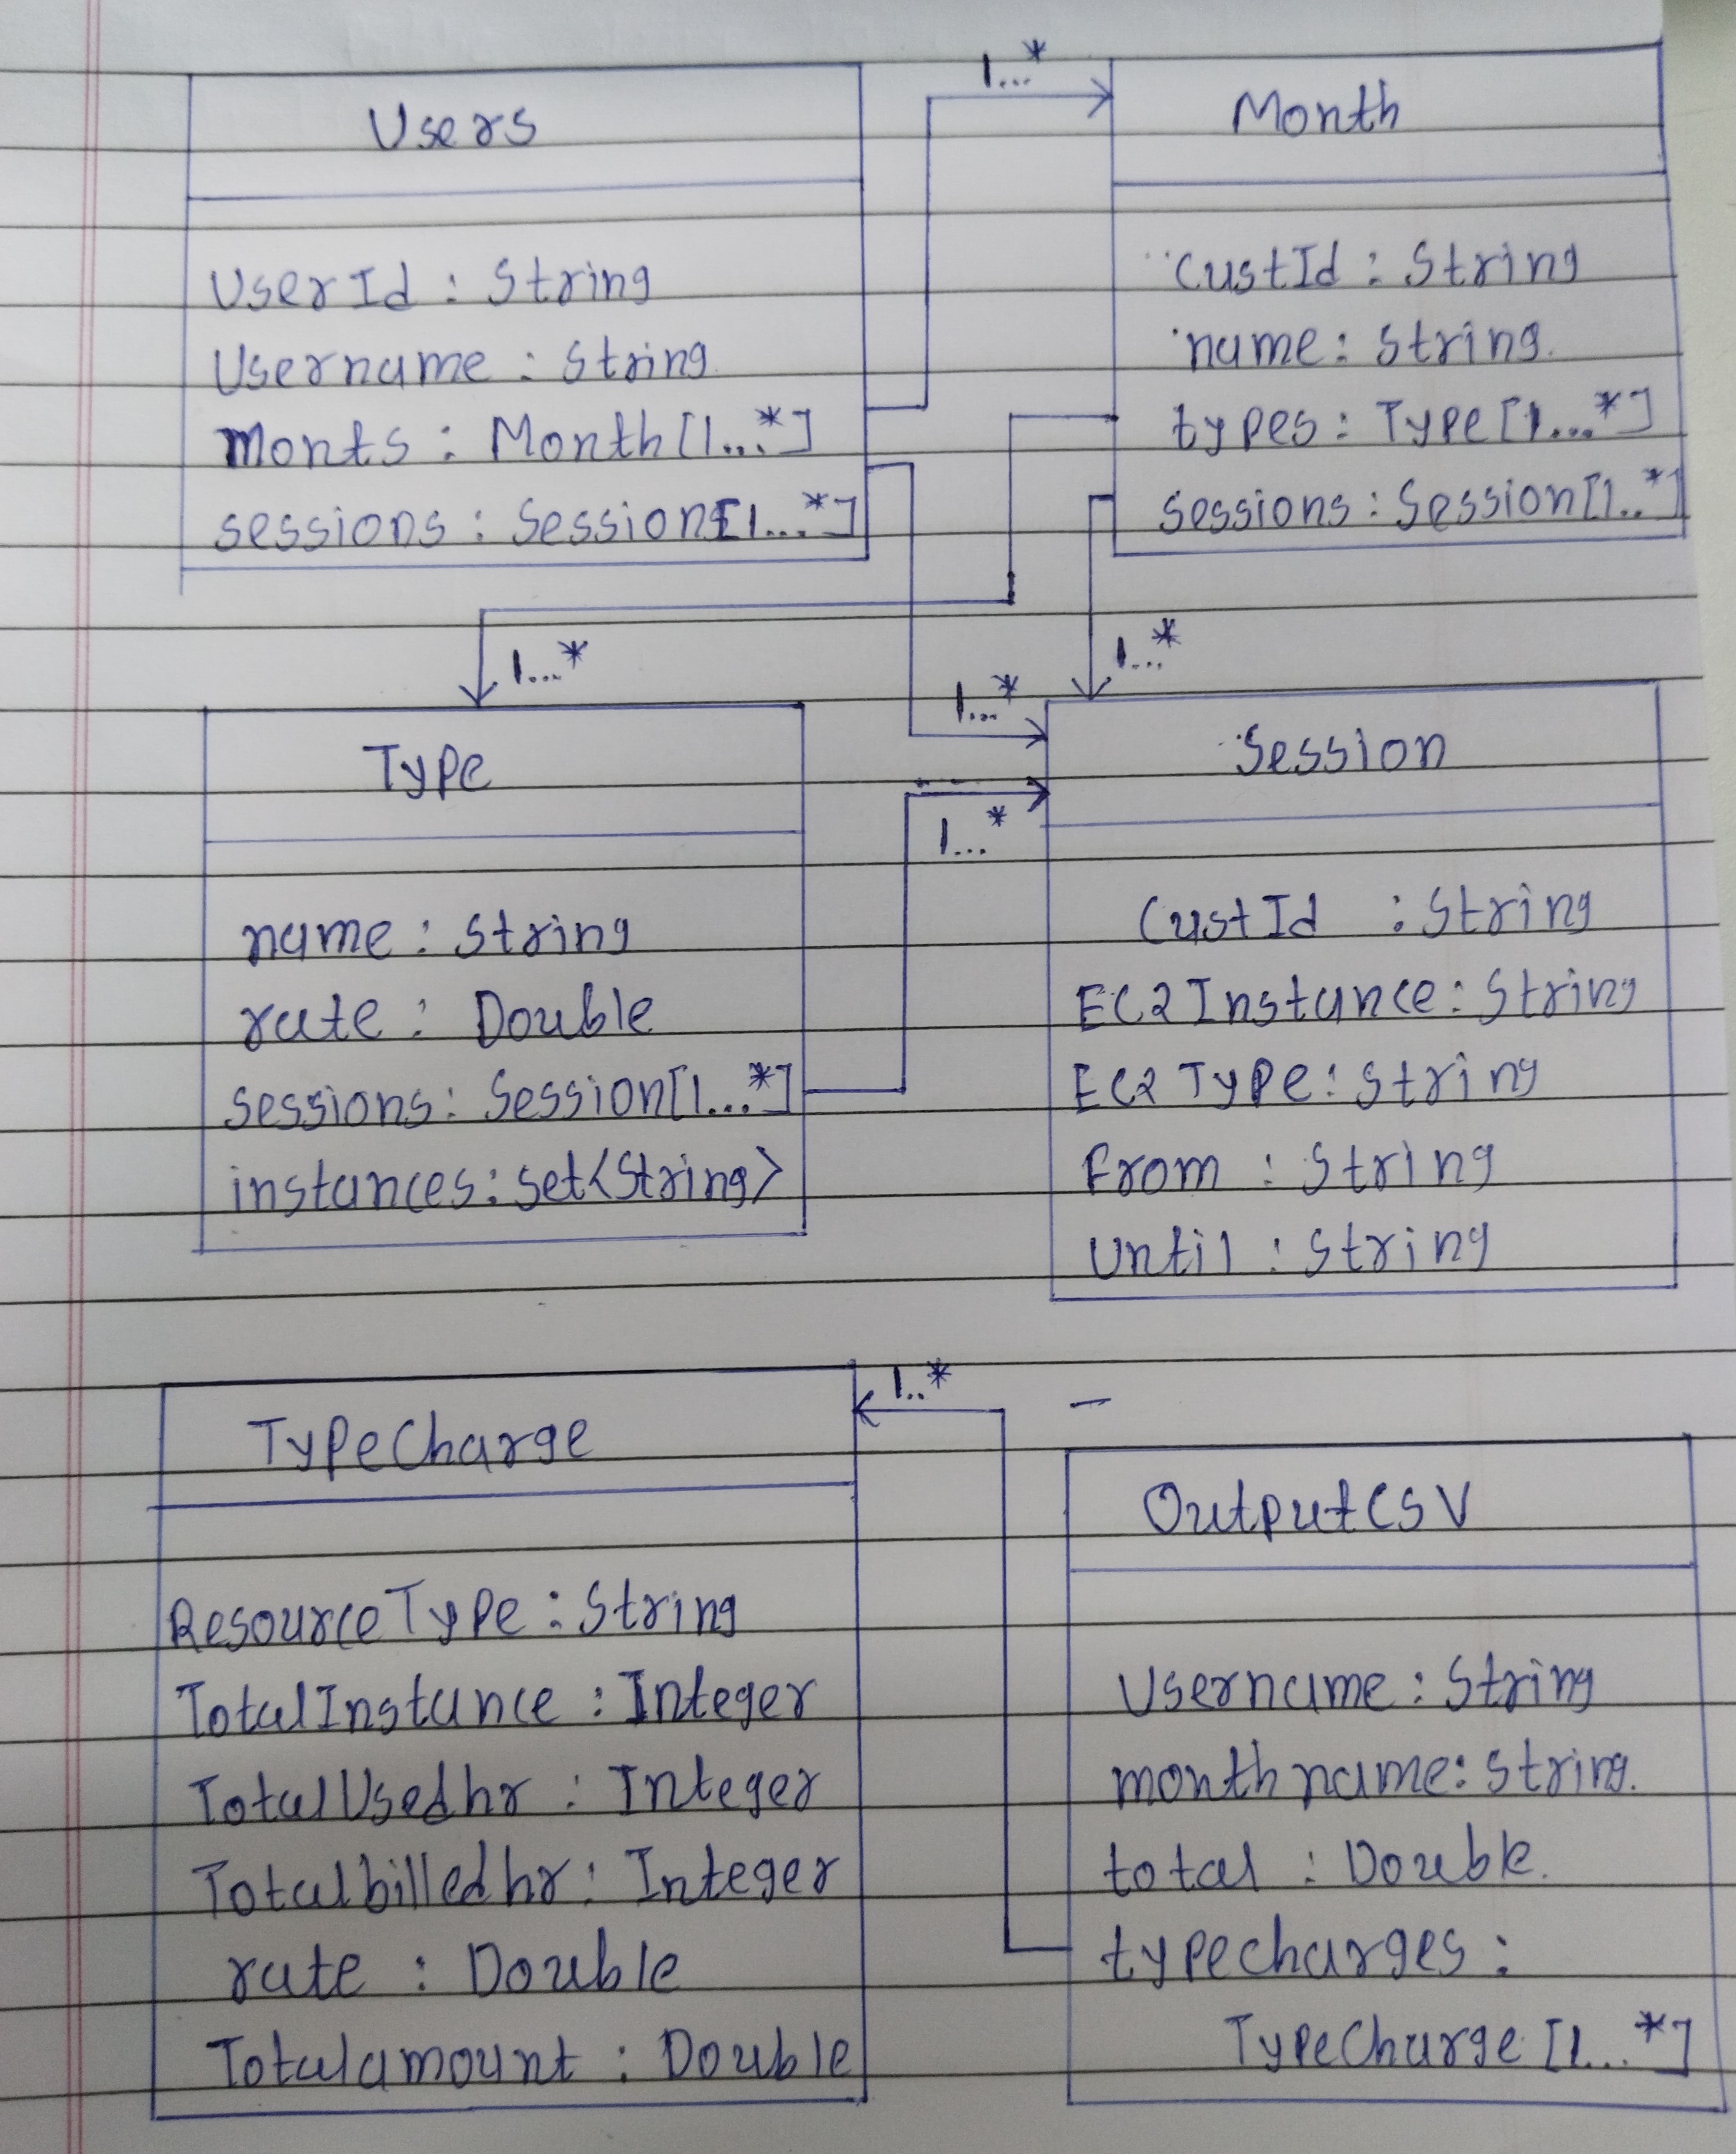 Users
UserId : String
Username : String
Monts : Month[1...*]
sessions : Session[1...*]
1...*
Month
CustId : String
name : String.
types : Type[1...*]
Sessions : Session[1..*]
1...*
1...*
1...*
Type
name : String
rate : Double
sessions : Session[1...*]
instances : set<String>
1...*
Session
CustId : String
EC2Instance : String
EC2 Type : String
From : String
Until : String
TypeCharge
ResourceType : String
TotalInstance : Integer
TotalUsedhr : Integer
Totalbilledhr : Integer
rate : Double
Totalamount : Double
1..*
OutputCSV
Username : String
monthname : String.
total : Double.
typecharges :
TypeCharge [1...*]